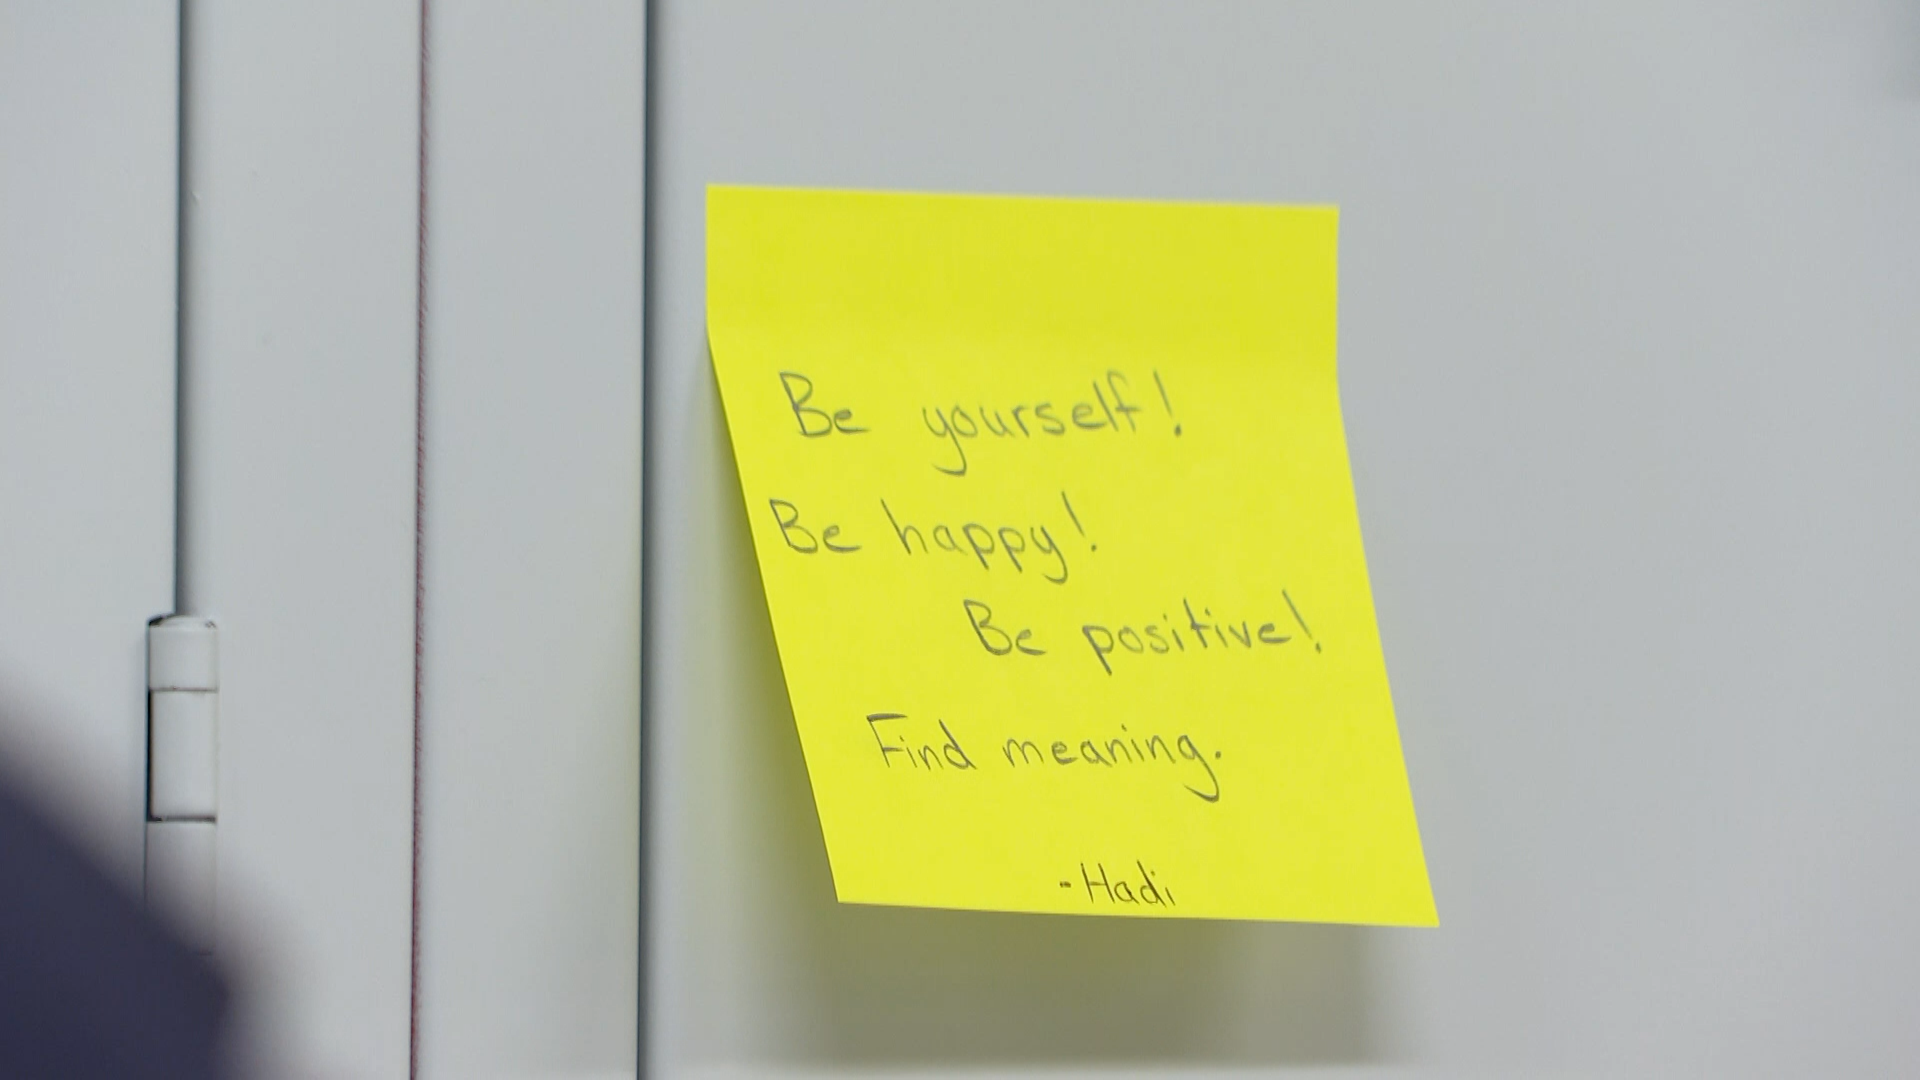 Be yourself!
Be happy!
Be positive!
Find meaning.
-Hadi